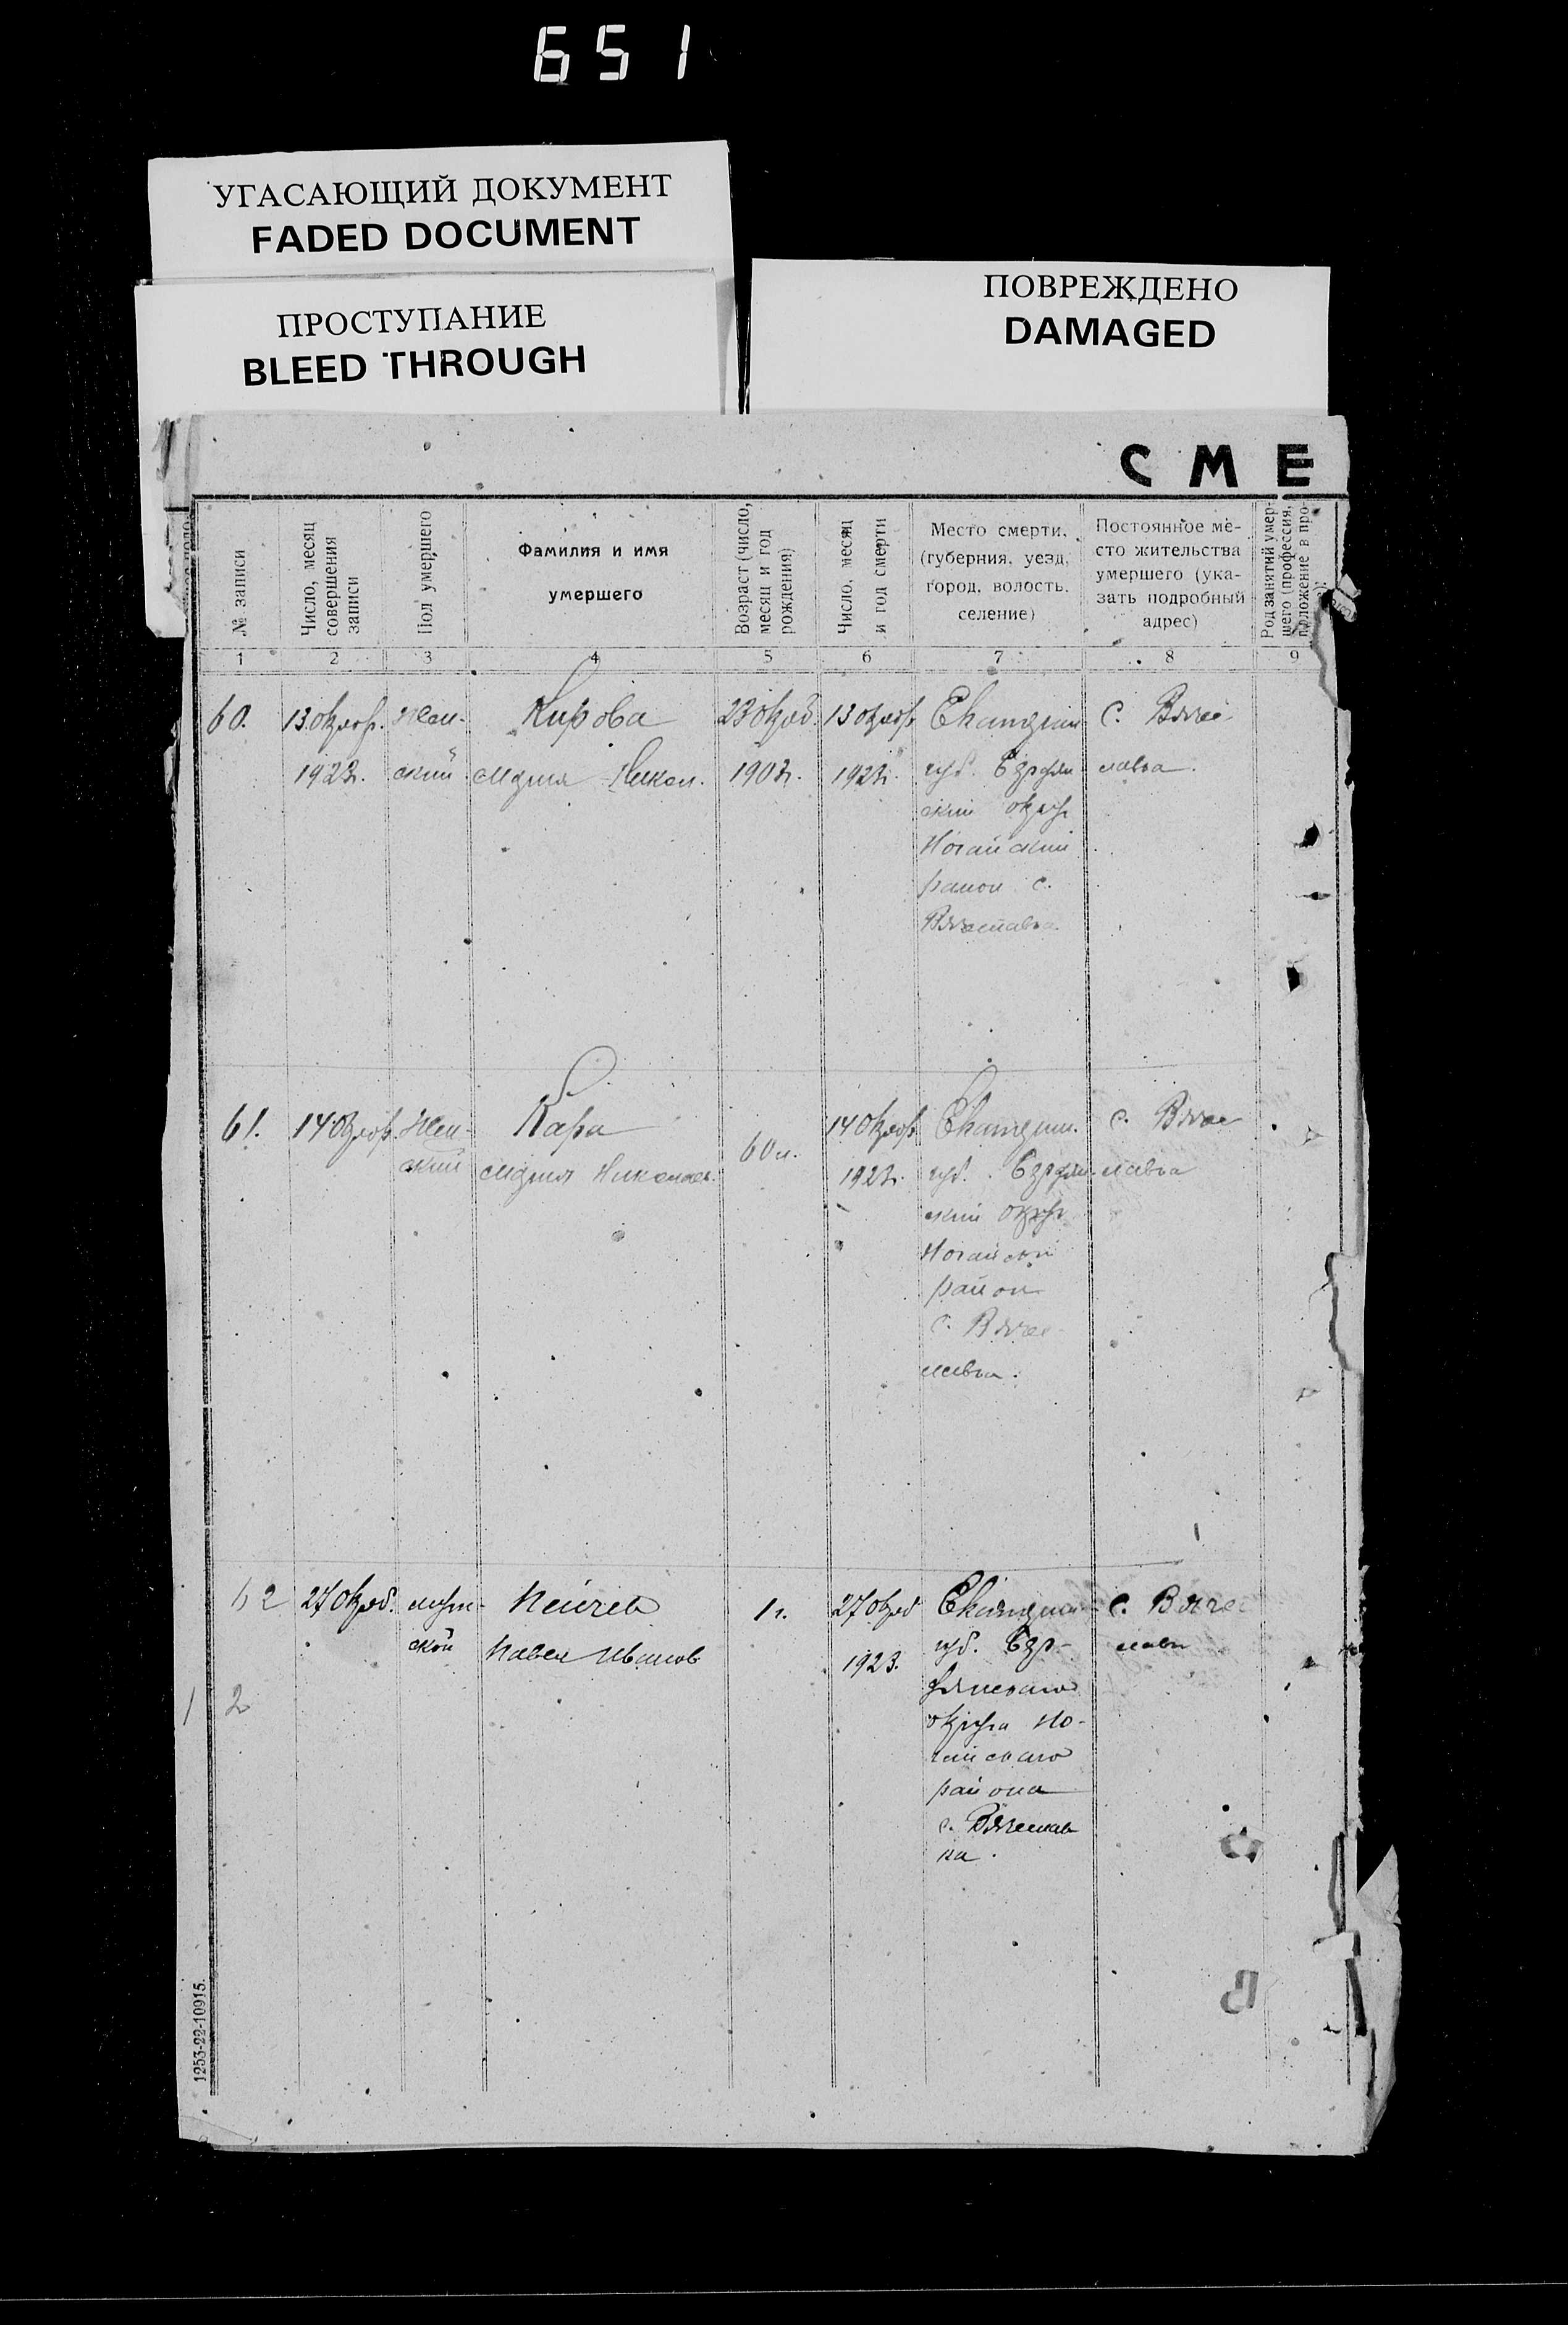 651
УГАСАЮЩИЙ ДОКУМЕНТ
FADED DOCUMENT
ПРОСТУПАНИЕ
BLEED THROUGH
ПОВРЕЖДЕНО
DAMAGED
СМЕ
№ записи
Число, месяц
совершения
записи
Пол умершего
Фамилия и имя
умершего
Возраст (число,
месяц и год
рождения)
Число, месяц
и год смерти
Место смерти.
(губерния, уезд,
город, волость,
селение)
Постоянное ме-
сто жительства
умершего (ука-
зать подробный
адрес)
Род занятий умер-
шего (профессия,
положение в про-
1 2 3 4 5 6 7 8 9
60.
13 октяб.
1923г.
Жен-
ский
Кирова
Мария Никол.
23 октяб.
190
13 октяб
1923г.
Екатерин
губ. Бердян
ский округ
Ногайский
район с.
Вячеславка
с. Вяче
славка.
61.
14 октяб.
Жен-
ский
Кара
Мария Николаев.
60 л.
14 октяб
1923г.
Екатерин.
губ. Бердян-
ский округ
Ногайский
район
с. Вяче-
славка.
с. Вяче
славка
62
27 октяб.
муж-
ской
Пейчев
Павел Иванов
1 г.
27 октяб
1923.
Екатерин-
губ. Бер-
дянскаго
округа Но-
гайскаго
района
с. Вячеслав
ка.
с. Вяче
славк
2
1253-22-10915.